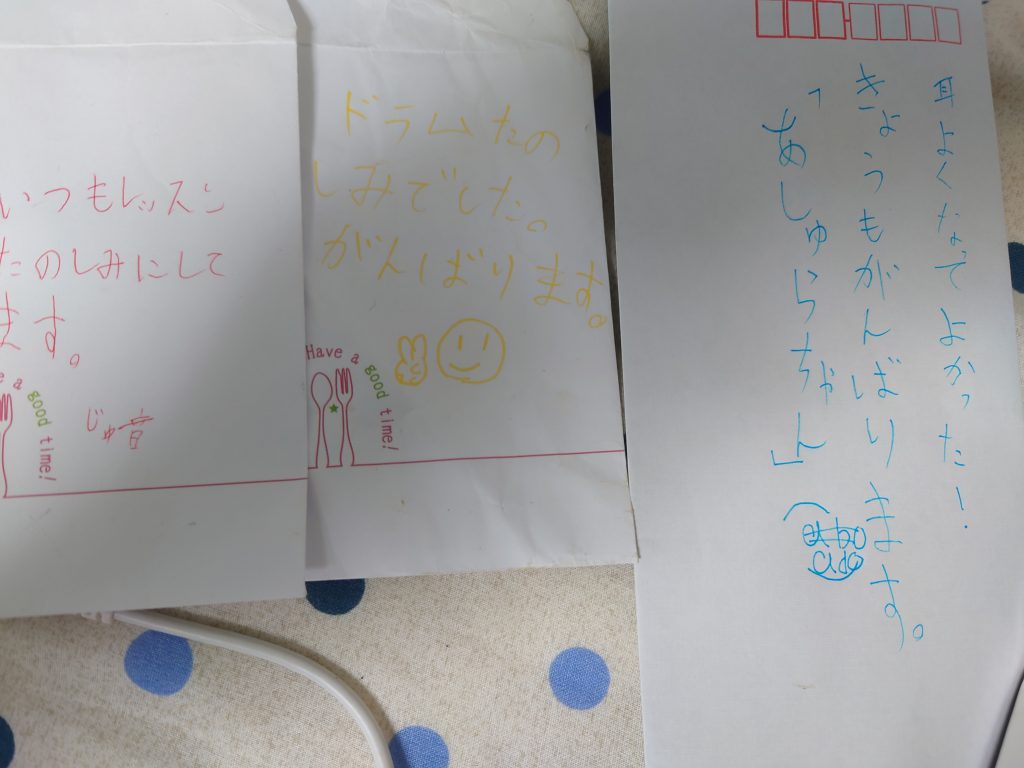 いつもレッスン
たのしみにして
ます。
じゅ音
e a good time!
ドラムたの
しみでした。
がんばります。
Have a good time!
耳よくなってよかった!
きょうもがんばります。
「あしゅらちゃん」